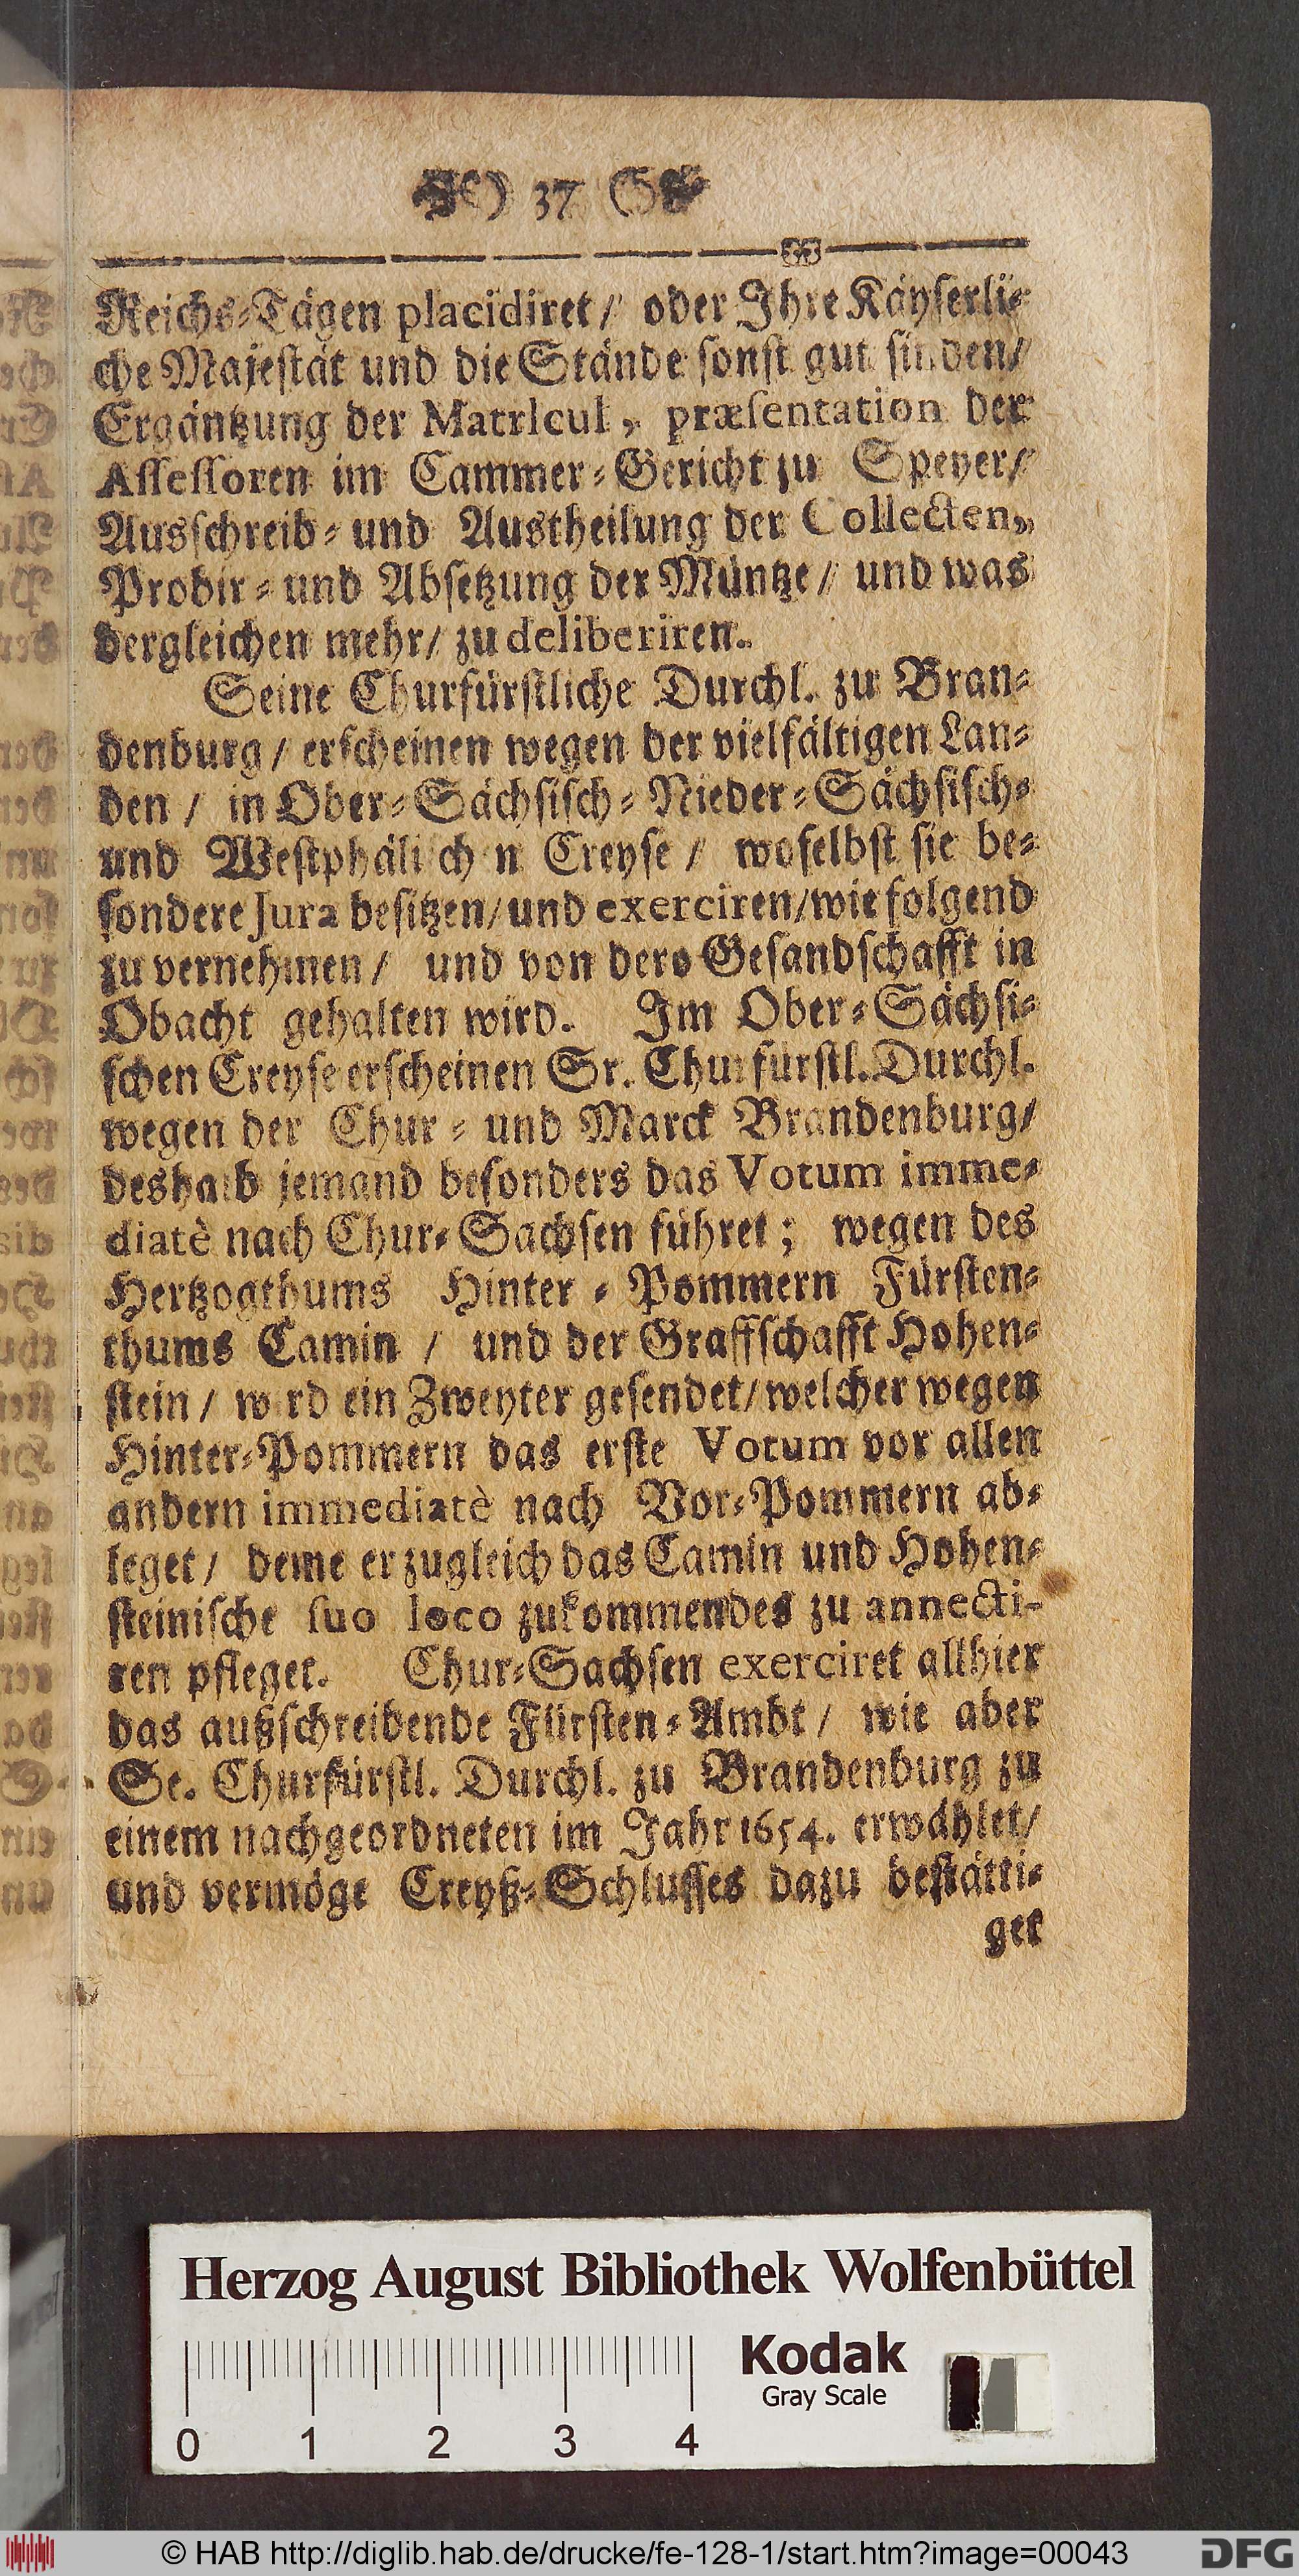 ) 37 (
Reichs-Tägen placidiret/ oder Ihre Käyserli-
che Majestät und die Stände sonst gut finden/
Ergäntzung der Matricul, præsentation der
Assessoren im Cammer-Gericht zu Speyer/
Ausschreib- und Austheilung der Collecten,
Probir- und Absetzung der Müntze/ und was
dergleichen mehr/ zu deliberiren.
Seine Churfürstliche Durchl. zu Bran-
denburg/ erscheinen wegen der vielfältigen Lan-
den/ in Ober-Sächsisch-Nieder-Sächsisch-
und Westphälischen Creyse/ woselbst sie be-
sondere Jura besitzen/und exerciren/wie folgend
zu vernehmen/ und von dero Gesandschafft in
Obacht gehalten wird. Im Ober-Sächsi-
schen Creyse erscheinen Sr. Churfürstl. Durchl.
wegen der Chur- und Marck Brandenburg/
deshalb jemand besonders das Votum imme-
diatè nach Chur-Sachsen führet; wegen des
Hertzogthums Hinter-Pommern Fürsten-
thums Camin/ und der Graffschafft Hohen-
stein/ wird ein Zweyter gesendet/welcher wegen
Hinter-Pommern das erste Votum vor allen
andern immediatè nach Vor-Pommern ab-
leget/ deme er zugleich das Camin und Hohen-
steinische suo loco zukommendes zu annecti-
ren pfleget. Chur-Sachsen exerciret allhier
das außschreibende Fürsten-Ambt/ wie aber
Se. Churfürstl. Durchl. zu Brandenburg zu
einem nachgeordneten im Jahr 1654. erwählet/
und vermöge Creyß-Schlusses dazu bestätti-
get
Herzog August Bibliothek Wolfenbüttel
Kodak
Gray Scale
0 1 2 3 4
© HAB http://diglib.hab.de/drucke/fe-128-1/start.htm?image=00043
DFG